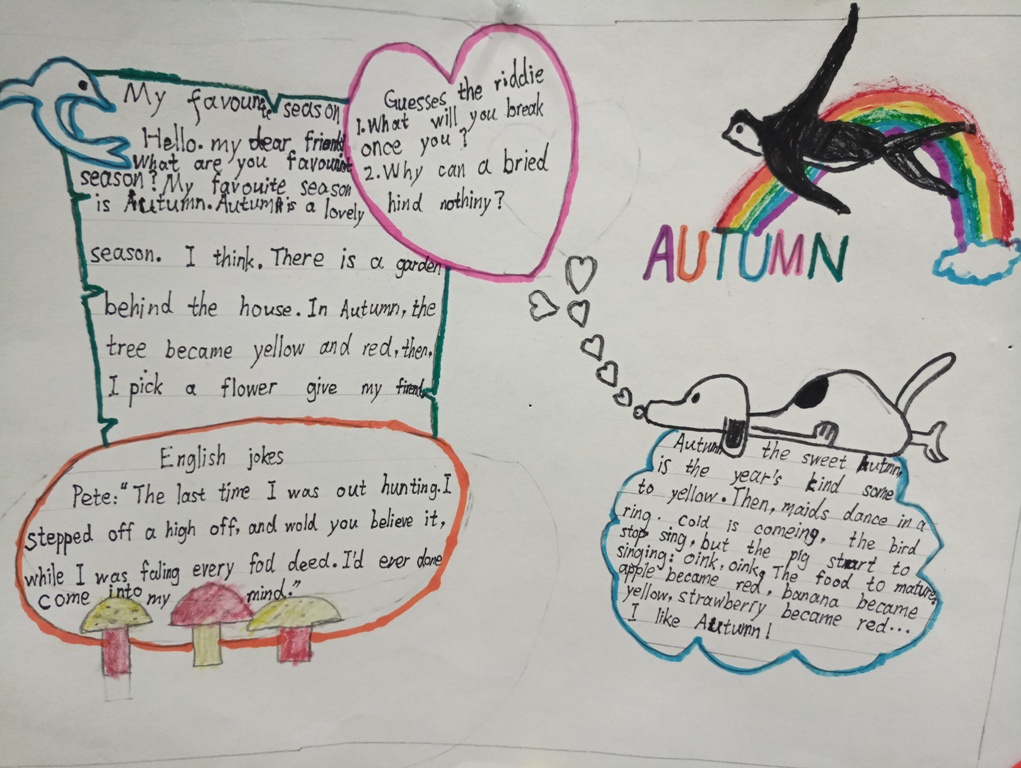 My favourite season
Hello. my dear friend
What are you favourist
season? My favouite season
is Autumn. Autumn is a lovely
season. I think. There is a garden
behind the house. In Autumn, the
tree became yellow and red, then,
I pick a flower give my friend
Guesses the riddie
1. What will you break
once you?
2. Why can a bried
hind nothiny?
AUTUMN
English jokes
Pete: "The last time I was out hunting. I
stepped off a high off, and wold you believe it,
while I was faling every fod deed. I'd ever done
come into my mind."
Autumn the sweet Autumn,
is the year's kind some
to yellow. Then, maids dance in a
ring. Cold is comeing, the bird
stop sing, but the pig start to
singing: oink, oink, The food to mature,
apple became red, banana became
yellow, strawberry became red...
I like Autumn!